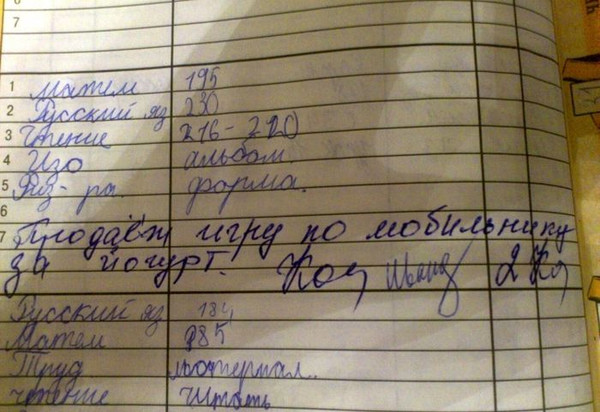 7
1 матем 195
2 Русский яз 230
3 Чтение 216-220
4 Изо альбом
5 Физ-ра. форма.
6
7 Продаёт игру по мобильнику
за йогурт. 2
Русский яз 184
Матем 285
Труд материал..
чтение читать